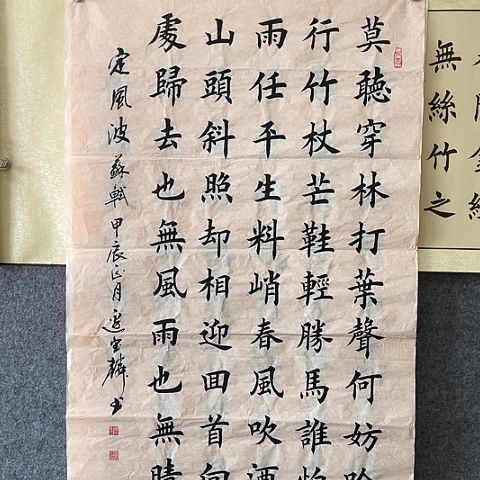 無絲竹之
莫聽穿林打葉聲何妨吟
行竹杖芒鞋輕勝馬誰怕
雨任平生料峭春風吹酒
山頭斜照却相迎回首向
處歸去也無風雨也無晴
定風波 蘇軾 甲辰正月